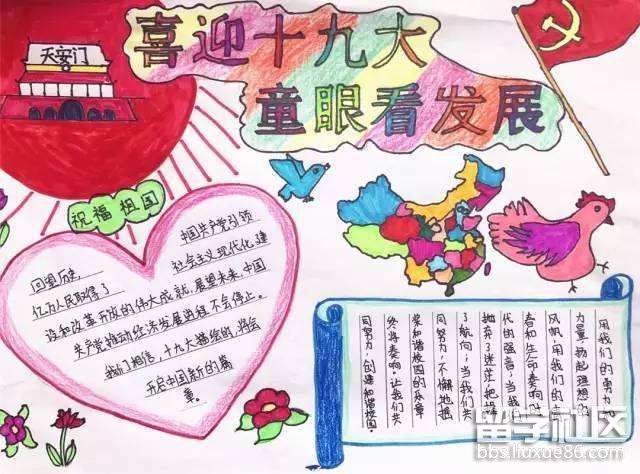 喜迎十九大
童眼看发展
天安门
祝福祖国
中国共产党引领
回望历史,社会主义现代化建
亿万人民取得了
设和改革开放的伟大成就,展望未来,中国
共产党推动经济发展进程不会停止。
我们相信,十九大描绘的,将会
开启中国新的篇
章。
用我们的
力量,扬起理想的
风帆,用我们的
春和生命奏响
代的强音;当我
抛弃了迷茫,把握
了航向;当我们共
同努力,不懈地摇
桨和谐校园的乐章
终将奏响。让我们共
同努力,创建和谐校园。
留学社区
bbs.liuxue86.com